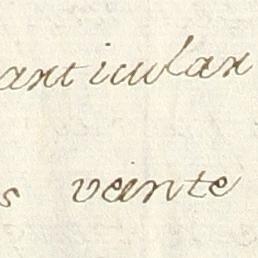 articular
s veinte